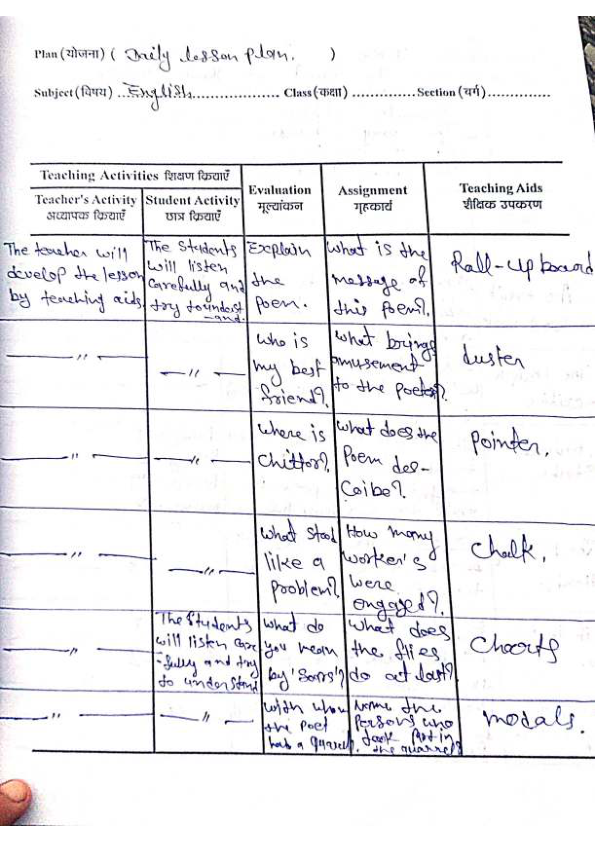 Plan (योजना) ( Daily lesson plan. )
Subject (विषय) ...English.................... Class (कक्षा) ..............Section (वर्ग)..............
Teaching Activities शिक्षण क्रियाएँ
Evaluation
मूल्यांकन
Assignment
गृहकार्य
Teaching Aids
शैक्षिक उपकरण
Teacher's Activity
अध्यापक क्रियाएँ
Student Activity
छात्र क्रियाएँ
The teacher will
develop the lesson
by teaching aids
The Students
will listen
carefully and
try to underst
-and.
Explain
the
poem.
What is the
message of
this Poem?
Roll-up board
—〃—
—〃—
who is
my best
friend?
What brings
amusement
to the poet?
duster
—〃—
—〃—
where is
Chittor?
What does the
Poem des-
cribe?
Pointer.
—〃—
—〃—
What stood
like a
problem?
How many
worker's
were
engaged?
Chalk.
—〃—
The Students
will listen care
-fully and try
to understand
what do
you mean
by
What does
the flies
do at last?
Charts
—〃—
—〃—
with whom
the Poet
has a quarrel.
Name the
Persons who
took Part in
the quarrel?
modals.